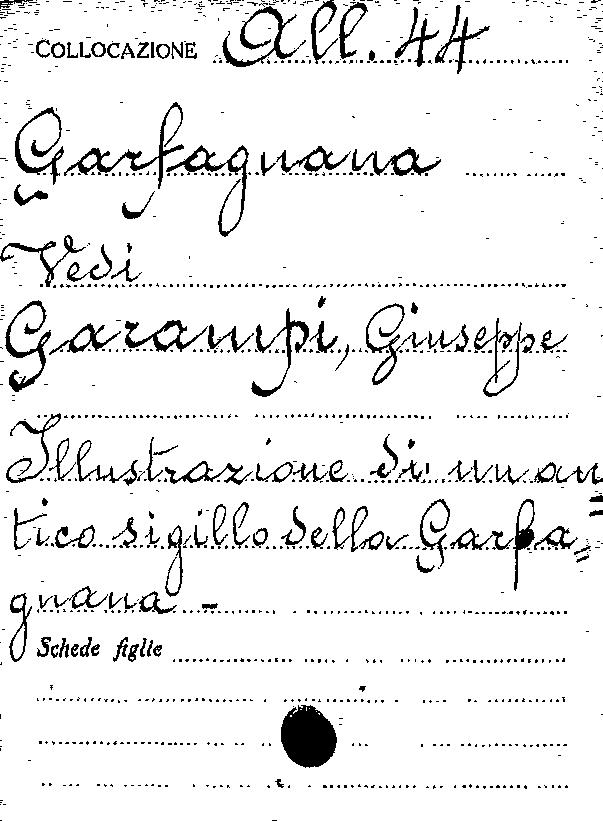 COLLOCAZIONE All. 44
Garfagnana
Vedi
Garampi, Giuseppe
Illustrazione di un an=
tico sigillo della Garfa=
gnana -
Schede figlie